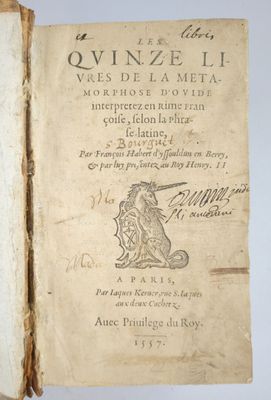 ex libris
LES
QVINZE LI-
VRES DE LA META-
MORPHOSE D'OVIDE
interpretez en Rime Fran
çoise, selon la Phra-
se latine,
s Bourguet
Par François Habert d'yssouldun en Berry,
& par luy presentez au Roy Henry. II
A PARIS,
Par Iaques Kerver, rue S. Iaques
aux deux Cochetz.
Auec Priuilege du Roy.
1557.